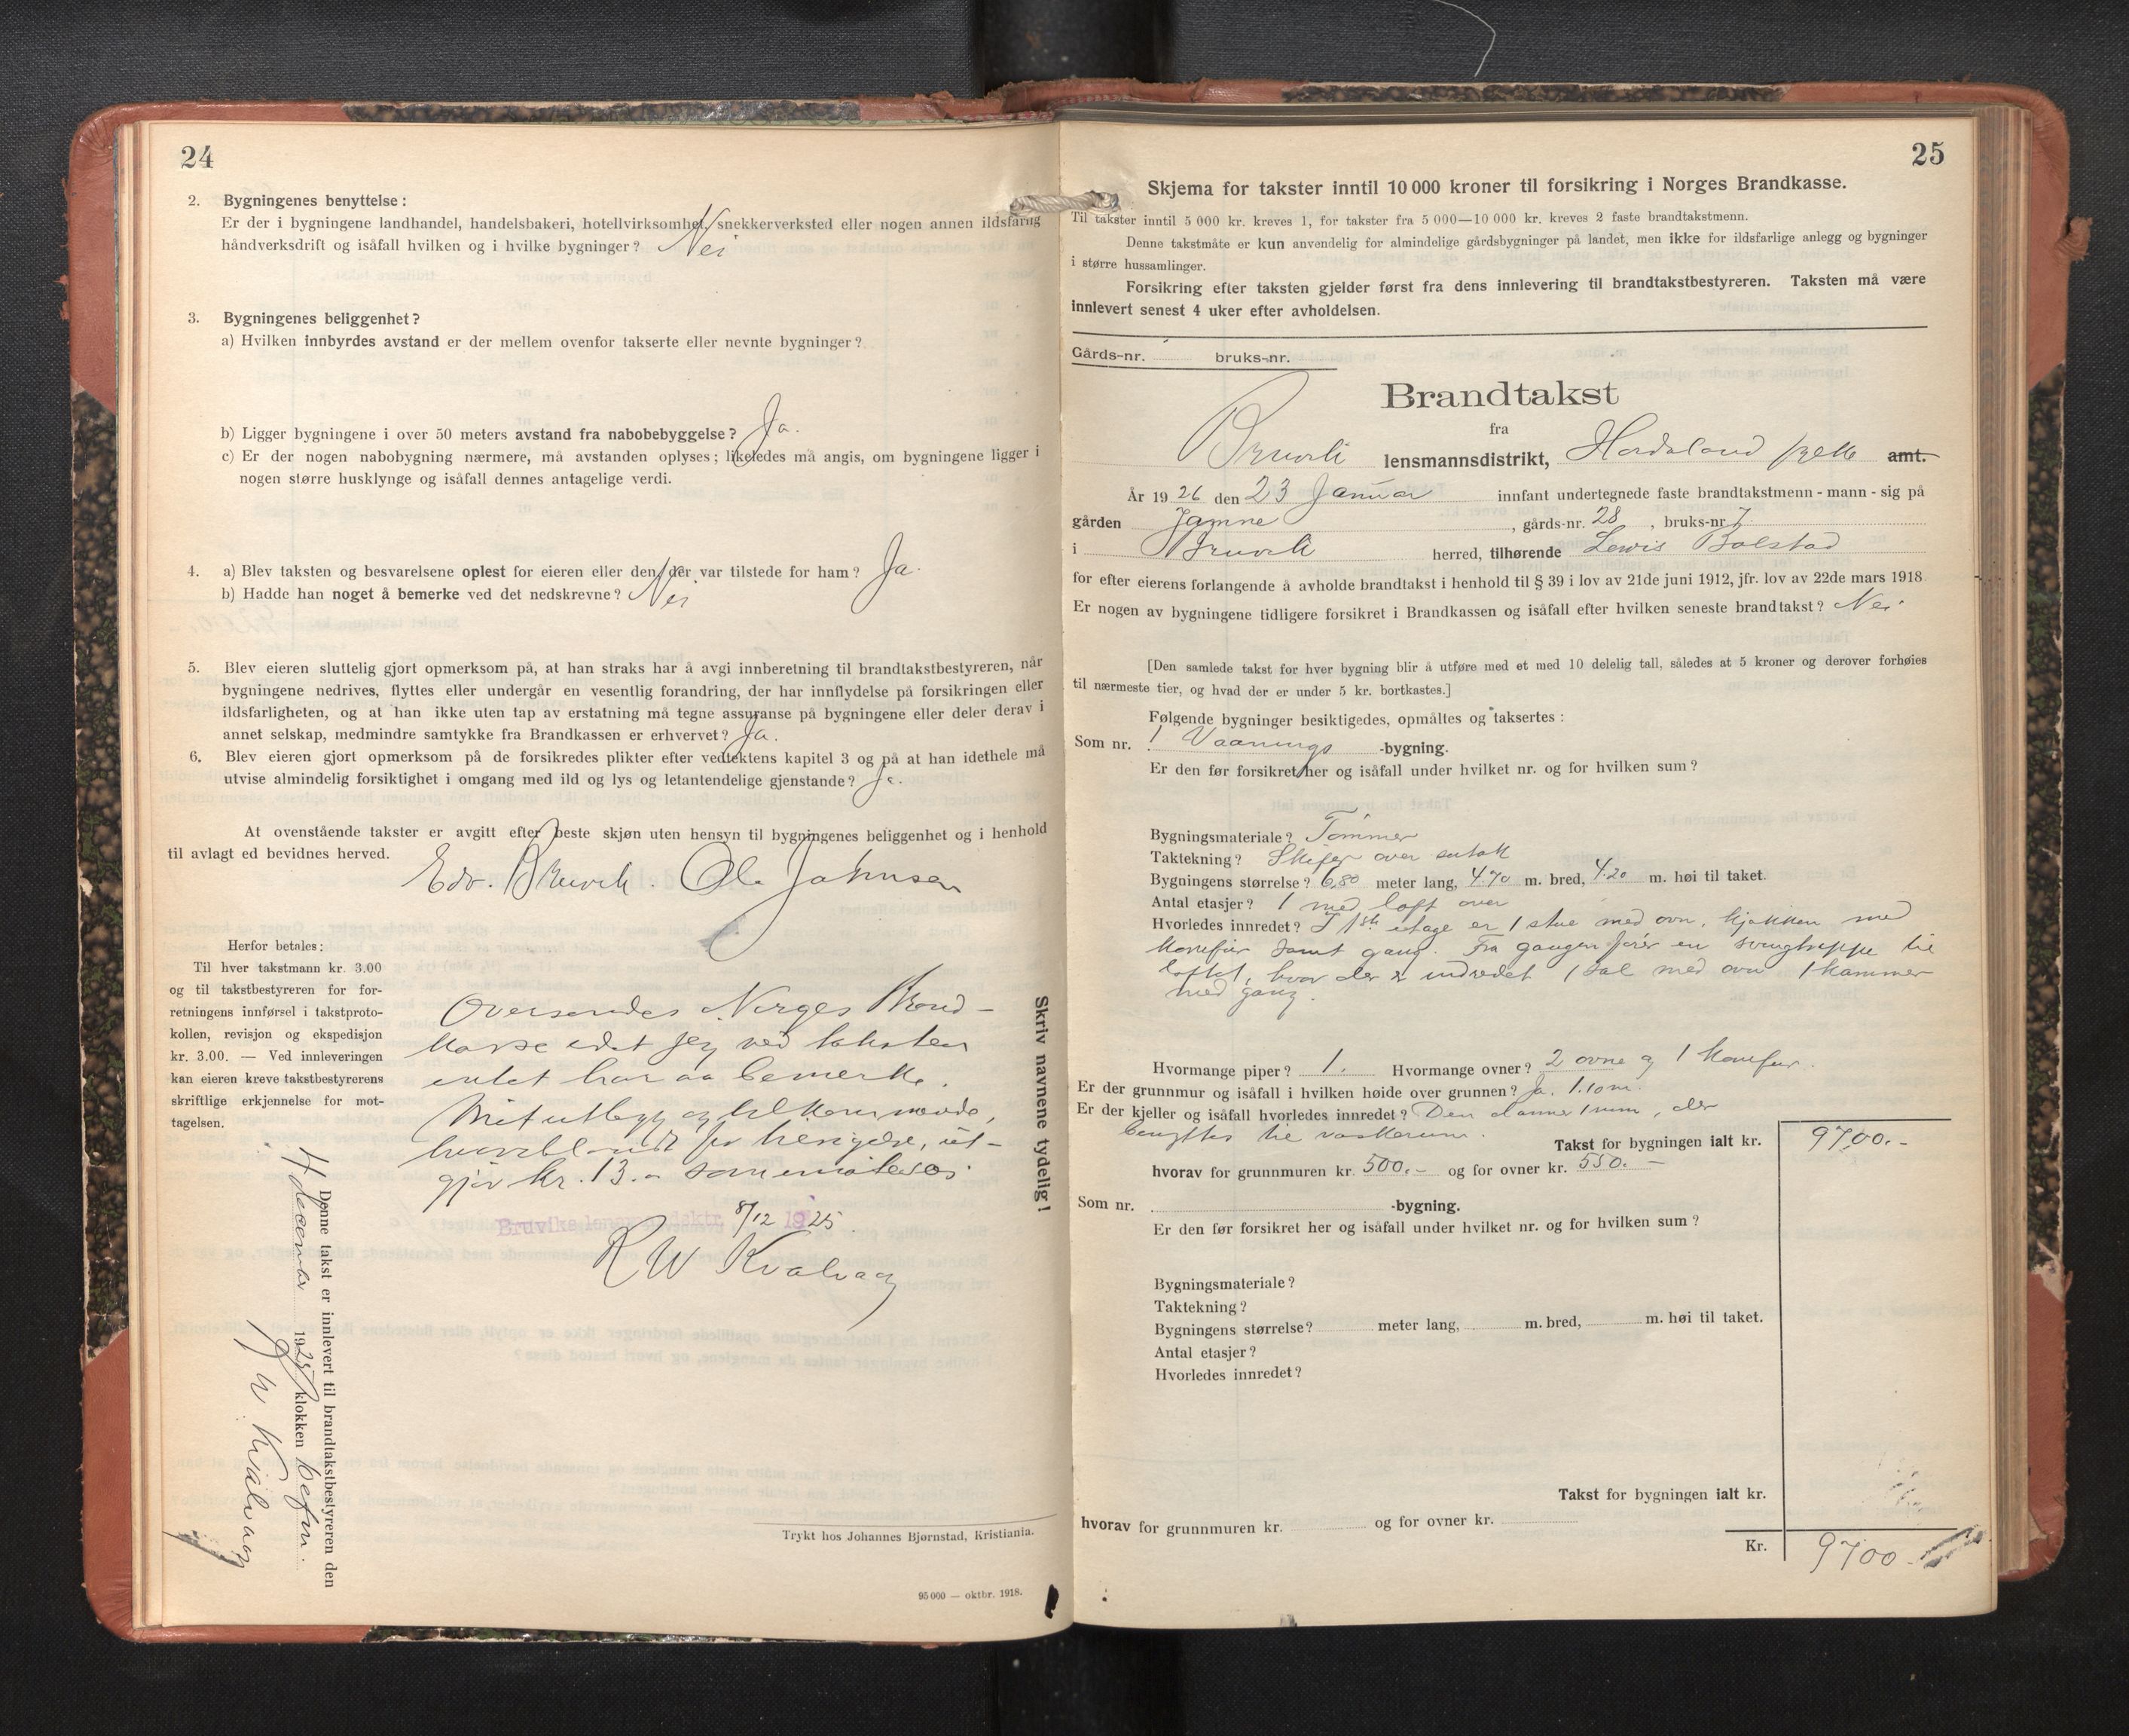 24
2. Bygningenes benyttelse:
Er der i bygningene landhandel, handelsbakeri, hotellvirksomhet, snekkerverksted eller nogen annen ildsfarlig
håndverksdrift og isåfall hvilken og i hvilke bygninger? Nei
3. Bygningenes beliggenhet?
a) Hvilken innbyrdes avstand er der mellem ovenfor takserte eller nevnte bygninger?
b) Ligger bygningene i over 50 meters avstand fra nabobebyggelse? Ja.
c) Er der nogen nabobygning nærmere, må avstanden oplyses; likeledes må angis, om bygningene ligger i
nogen større husklynge og isåfall dennes antagelige verdi.
4. a) Blev taksten og besvarelsene oplest for eieren eller den, der var tilstede for ham? Ja.
b) Hadde han noget å bemerke ved det nedskrevne? Nei
5. Blev eieren sluttelig gjort opmerksom på, at han straks har å avgi innberetning til brandtakstbestyreren, når
bygningene nedrives, flyttes eller undergår en vesentlig forandring, der har innflydelse på forsikringen eller
ildsfarligheten, og at han ikke uten tap av erstatning må tegne assuranse på bygningene eller deler derav i
annet selskap, medmindre samtykke fra Brandkassen er erhvervet? Ja.
6. Blev eieren gjort opmerksom på de forsikredes plikter efter vedtektens kapitel 3 og på at han idethele må
utvise almindelig forsiktighet i omgang med ild og lys og letantendelige gjenstande? Ja.
At ovenstående takster er avgitt efter beste skjøn uten hensyn til bygningenes beliggenhet og i henhold
til avlagt ed bevidnes herved.
Edv. Bruvik. Ole Johnsen
Herfor betales:
Til hver takstmann kr. 3.00
og til takstbestyreren for for-
retningens innførsel i takstproto-
kollen, revisjon og ekspedisjon
kr. 3.00. — Ved innleveringen
kan eieren kreve takstbestyrerens
skriftlige erkjennelse for mot-
tagelsen.
Oversendes Norges Brand-
kasse idet jeg ved taksten
intet har aa bemerke.
Mit utlegg og tilkommende,
hvoriblandt for hengivelse, ut-
gjør kr. 13.-
Bruviks lensmannsdistr. 8/12 1925.
R W Kvalvaag
Skriv navnene tydelig!
Denne takst er innlevert til brandtakstbestyreren den
4 december 1925 klokken 6 efm.
R W Kvalvaag
Trykt hos Johannes Bjørnstad, Kristiania.
95 000 — oktbr. 1918.
25
Skjema for takster inntil 10 000 kroner til forsikring i Norges Brandkasse.
Til takster inntil 5 000 kr. kreves 1, for takster fra 5 000—10 000 kr. kreves 2 faste brandtakstmenn.
Denne takstmåte er kun anvendelig for almindelige gårdsbygninger på landet, men ikke for ildsfarlige anlegg og bygninger
i større hussamlinger.
Forsikring efter taksten gjelder først fra dens innlevering til brandtakstbestyreren. Taksten må være
innlevert senest 4 uker efter avholdelsen.
Gårds-nr. bruks-nr.
Brandtakst
fra
Bruvik lensmannsdistrikt, Hordaland fylke amt.
År 1926 den 23 Januar innfant undertegnede faste brandtakstmenn - mann - sig på
gården Jamne, gårds-nr. 28, bruks-nr. 7
i Bruvik herred, tilhørende Lewis Bolstad
for efter eierens forlangende å avholde brandtakst i henhold til § 39 i lov av 21de juni 1912, jfr. lov av 22de mars 1918
Er nogen av bygningene tidligere forsikret i Brandkassen og isåfall efter hvilken seneste brandtakst? Nei.
[Den samlede takst for hver bygning blir å utføre med et med 10 delelig tall, således at 5 kroner og derover forhøies
til nærmeste tier, og hvad der er under 5 kr. bortkastes.]
Følgende bygninger besiktigedes, opmåltes og taksertes:
Som nr. 1 Vaanings -bygning.
Er den før forsikret her og isåfall under hvilket nr. og for hvilken sum?
Bygningsmateriale? Tømmer
Taktekning? Skifer over sutak
Bygningens størrelse? 6.80 meter lang, 4.70 m. bred, 4.20 m. høi til taket.
Antal etasjer? 1 med loft over
Hvorledes innredet? I 1ste etage er 1 stue med ovn, kjøkken med
komfür samt gang. Fra gangen fører en svingtrappe til
loftet, hvor der er indredet 1 sal med ovn 1 kammer
med gang.
Hvormange piper? 1. Hvormange ovner? 2 ovne og 1 komfur.
Er der grunnmur og isåfall i hvilken høide over grunnen? Ja. 1.10 m.
Er der kjeller og isåfall hvorledes innredet? Den danner 1 rum, der
benyttes til vaskerum.
Takst for bygningen ialt kr. 9700.-
hvorav for grunnmuren kr. 500.- og for ovner kr. 550.-
Som nr. -bygning.
Er den før forsikret her og isåfall under hvilket nr. og for hvilken sum?
Bygningsmateriale?
Taktekning?
Bygningens størrelse? meter lang, m. bred, m. høi til taket.
Antal etasjer?
Hvorledes innredet?
Takst for bygningen ialt kr.
hvorav for grunnmuren kr. og for ovner kr.
Kr. 9700.-